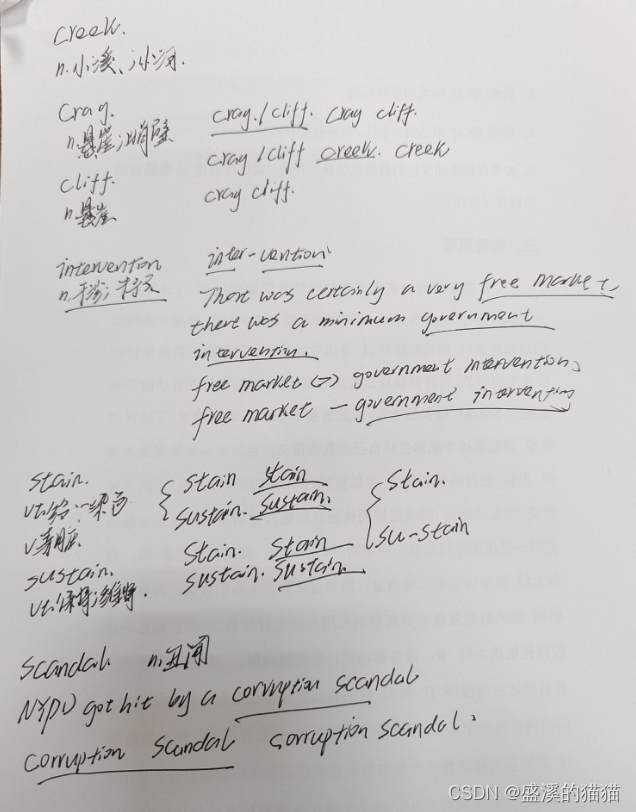 creek.
n.小溪、小河.
crag. crag/cliff. crag cliff.
n.悬崖;峭壁
crag/cliff creek. creek
cliff. crag cliff.
n.悬崖
intervention inter-vention
n.干涉;干预 There was certainly a very free market,
there was a minimum government
intervention.
free market <-> government intervention
free market - government intervention
stain. stain stain stain.
vt.给…染色 sustain. sustain.
v.弄脏 stain. stain su-stain
sustain. sustain. sustain.
vt.保持;维持.
scandal. n.丑闻
NYPD got hit by a corruption scandal
corruption scandal corruption scandal.
CSDN @盛溪的猫猫